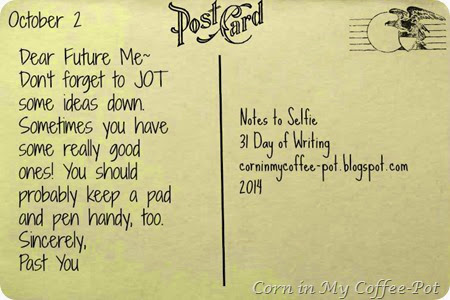 October 2
Post Card
Dear Future Me~
Don't forget to JOT
some ideas down.
Sometimes you have
some really good
ones! You should
probably keep a pad
and pen handy, too.
Sincerely,
Past You
Notes to Selfie
31 Day of Writing
corninmycoffee-pot.blogspot.com
2014
Corn in My Coffee-Pot